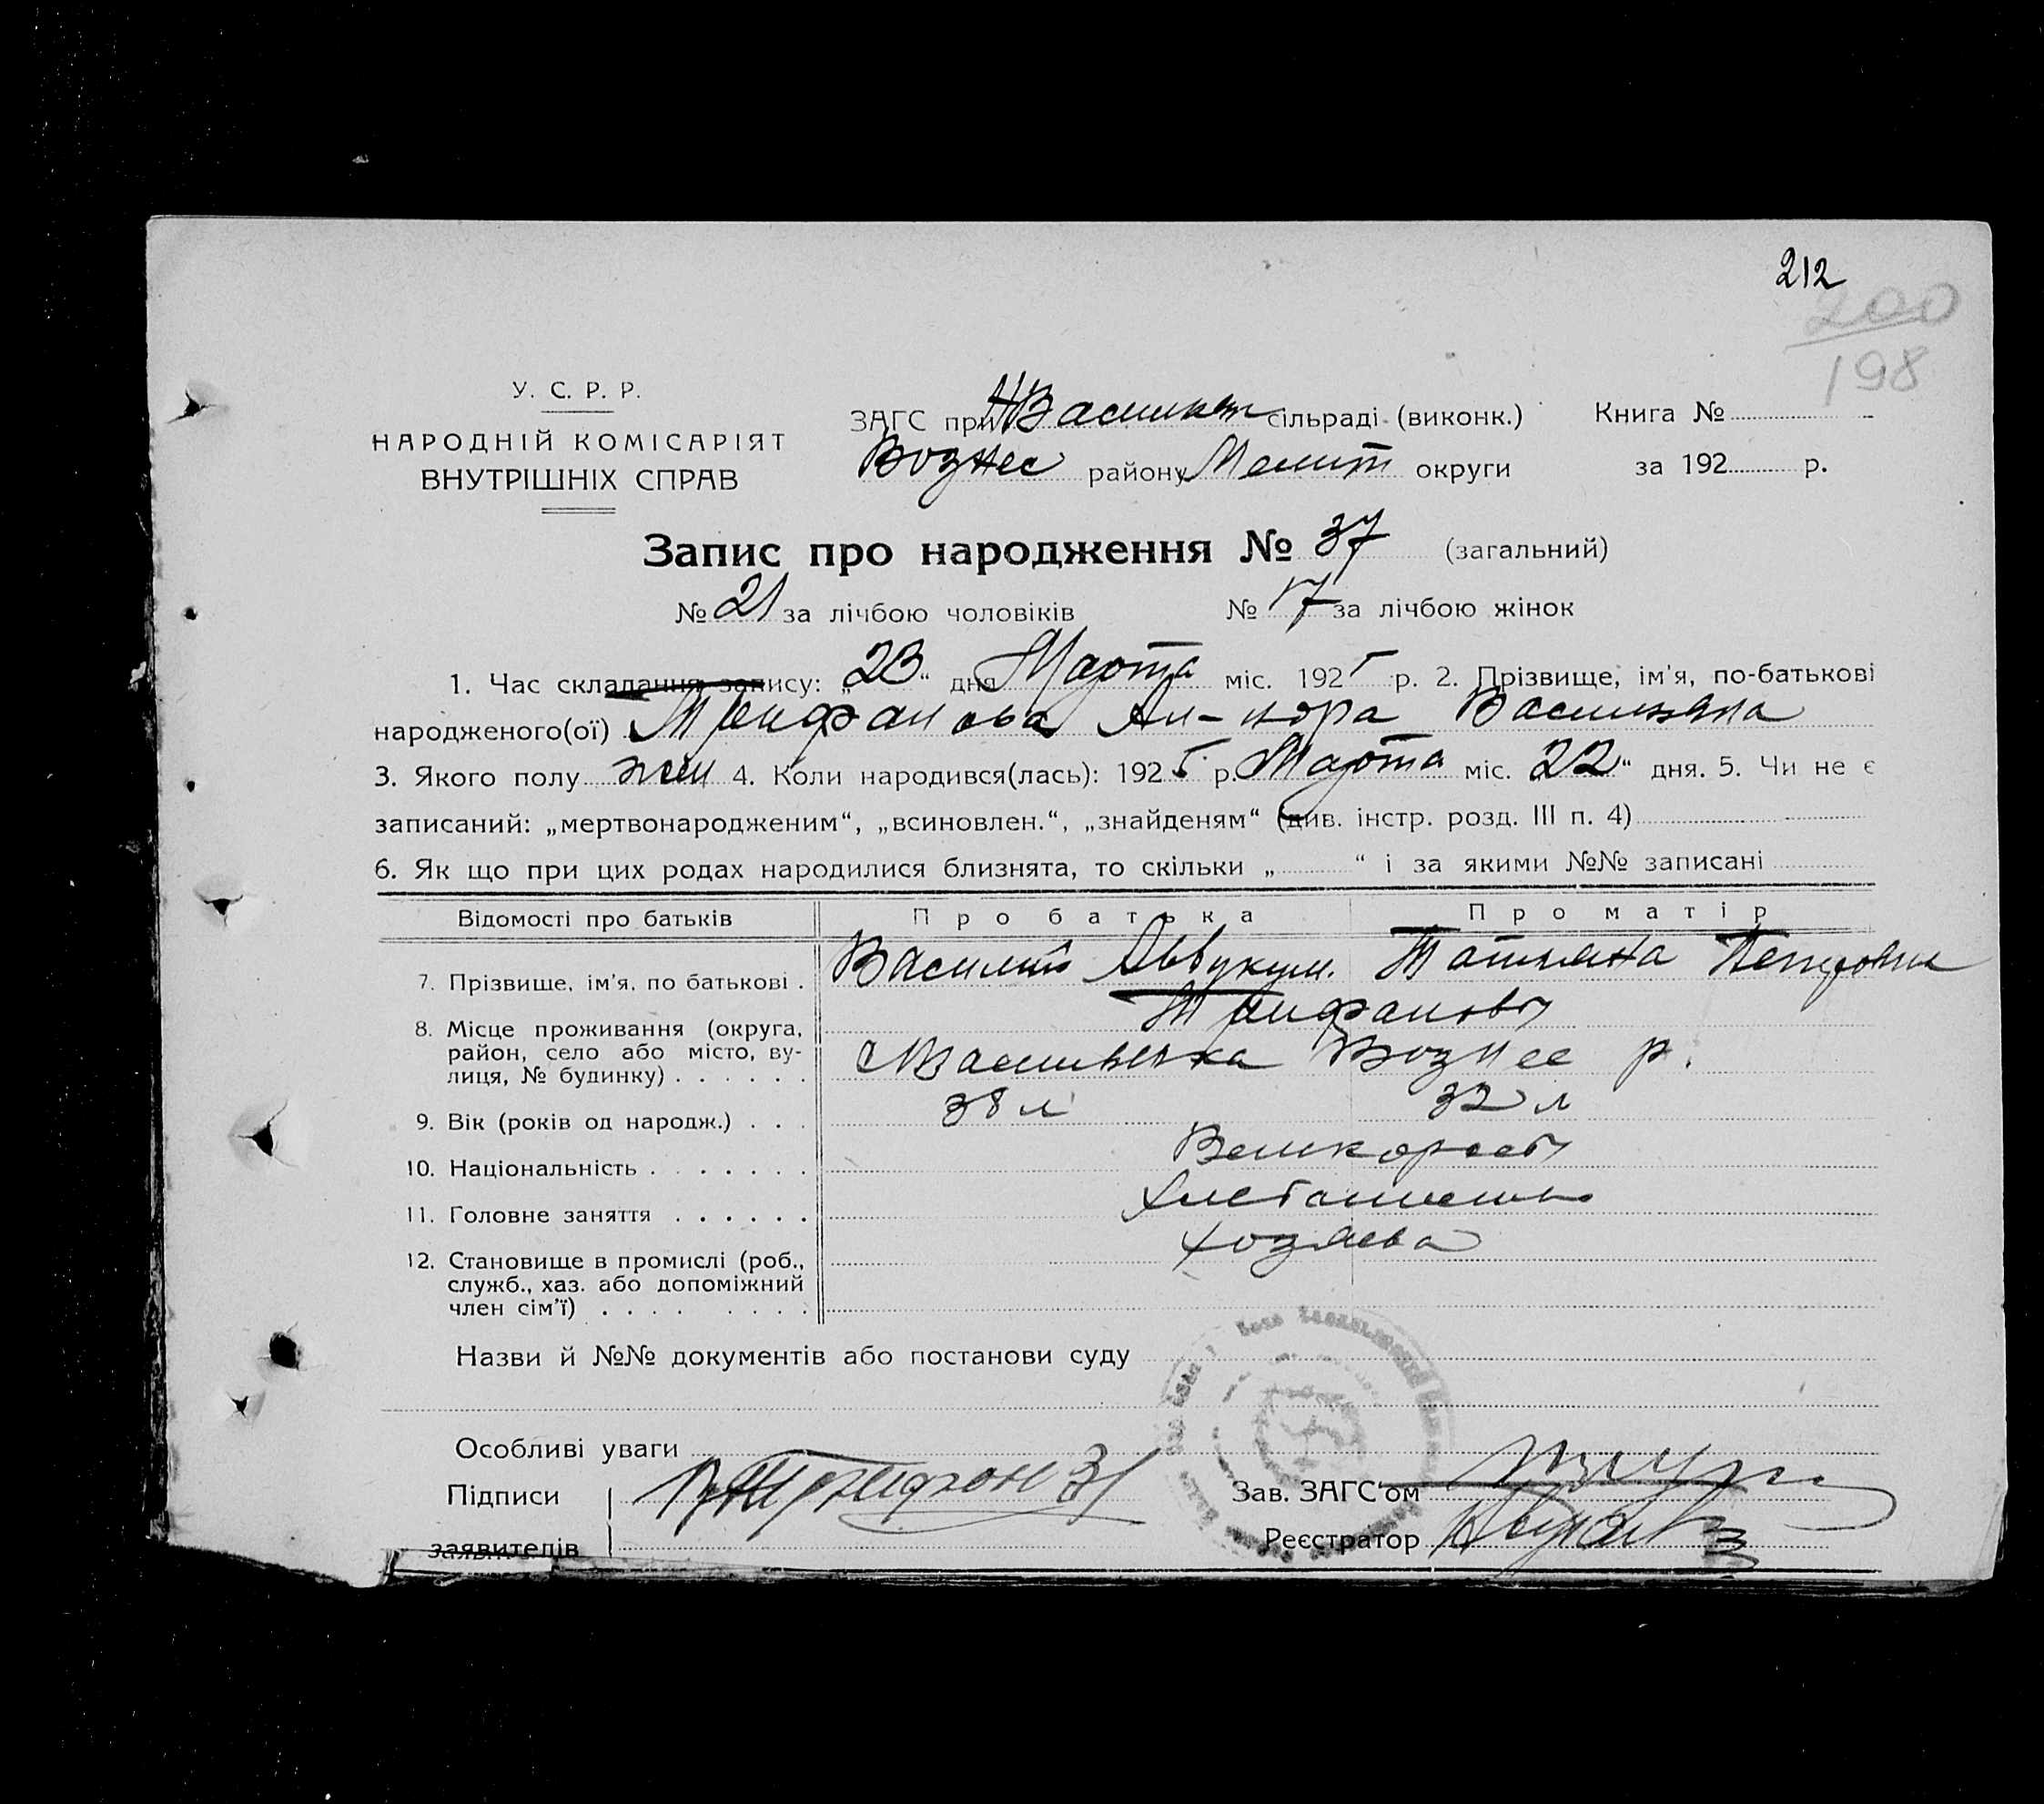 212
200
198
У. С. Р. Р.
НАРОДНІЙ КОМІСАРІЯТ
ВНУТРІШНІХ СПРАВ
ЗАГС при НВасильев сільраді (виконк.) Книга №
Вознес району Мелит округи за 192 р.
Запис про народження № 37 (загальний)
№ 21 за лічбою чоловіків № 17 за лічбою жінок
1. Час складання запису: „23“ дня Марта міс. 1925 р. 2. Прізвище, ім'я, по-батькові
народженого(ої) Трифанова Ал-ндра Васильевна
3. Якого полу жен 4. Коли народився(лась): 1925 р. Марта міс. 22“ дня. 5. Чи не є
записаний: „мертвонародженим“, „всиновлен.“, „знайденям“ (див. інстр. розд. III п. 4)
6. Як що при цих родах народилися близнята, то скільки „ “ і за якими №№ записані
Відомості про батьків Про батька Про матір
7. Прізвише, ім'я, по батькові . Василий Аввукум. Татьяна Петровна
Трифановы
8. Місце проживання (округа,
район, село або місто, ву-
лиця, № будинку) . . . . . . НВасильевка Вознес р.
9. Вік (років од народж.) . . . 38 л 32 л
10. Національність . . . . . . . Великороссы
11. Головне заняття . . . . . . Хлебопашеств
хозяева
12. Становище в промислі (роб.,
служб., хаз. або допоміжний
член сім'ї) . . . . . . . .
Назви й №№ документів або постанови суду
Особливі уваги
Підписи Зав. ЗАГС'ом
заявителів Реєстратор